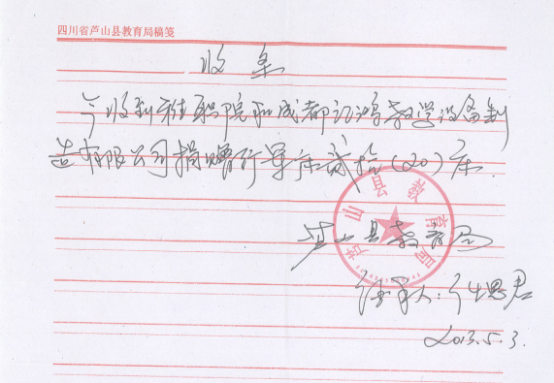 四川省芦山县教育局稿笺
收条
今收到雅职院和成都 鸿教学设备制
造有限公司捐赠行军床 (20)床.
芦山县教育局
芦山县教育局
经手人: 思君
2013.5.3.